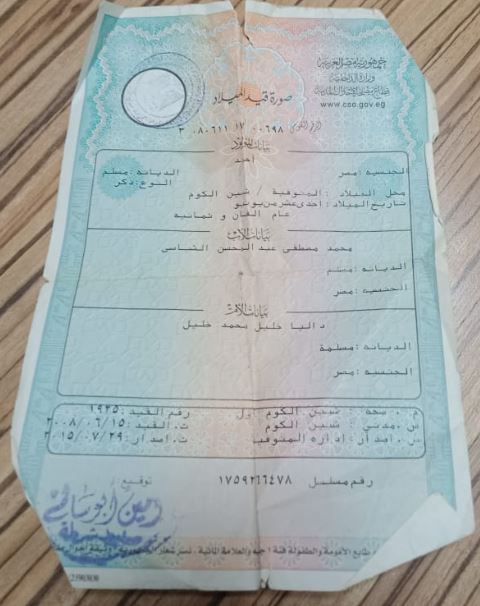 جمهورية مصر العربية
وزارة الداخلية
قطاع مصلحة الأحوال المدنية
www.cso.gov.eg
صورة قيد الميلاد
الرقم القومى ٣ ٠٨٠٦١١ ١٧ ٠٠٦٩٨
بيانات المولود
أحمد
الجنسية: مصر الديانة: مسلم
النوع: ذكر
محل الميلاد: المنوفية / شبين الكوم
تاريخ الميلاد: احدى عشر من يونيو
عام الفان و ثمانيه
بيانات الأب
محمد مصطفى عبد المحسن الشاسى
الديانه: مسلم
الجنسيه: مصر
بيانات الأم
داليا خليل محمد خليل
الديانه: مسلمة
الجنسيه: مصر
م. صحة: شبين الكوم اول رقم القيد: ١٩٢٥
س. مدني: شبين الكوم ت. القيد: ٢٠٠٨/٠٦/١٥
س. اصدار: اداره المنوفية ت. اصدار: ٢٠١٥/٠٧/٢٩
رقم مسلسل ١٧٥٩٢٦٦٤٧٨ توقيع:
طابع الأمومة والطفولة فئة جنيه والعلامة المائية، نسر شعار الجمهورية